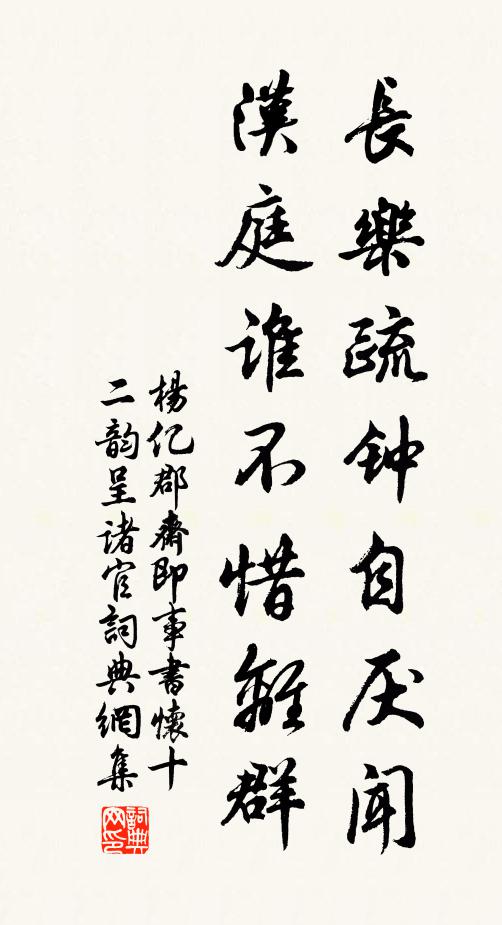 長樂疏钟自厌闻
漢庭谁不惜離群
楊亿郡齋即事書懷十
二韵呈诸官詞典網集
詞典
网印